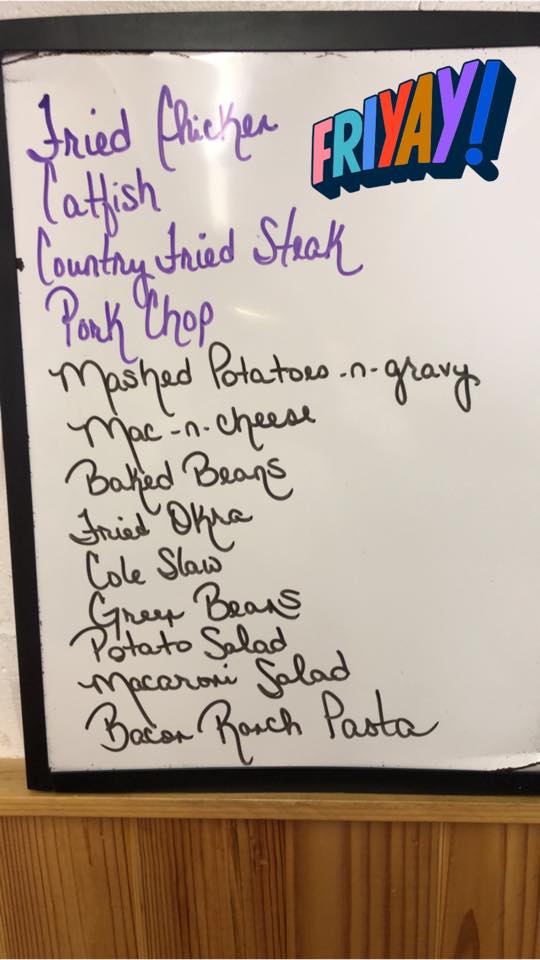 Fried Chicken
FRIYAY!
Catfish
Country Fried Steak
Pork Chop
Mashed Potatoes-n-gravy
Mac-n-cheese
Baked Beans
Fried Okra
Cole Slaw
Green Beans
Potato Salad
Macaroni Salad
Bacon Ranch Pasta